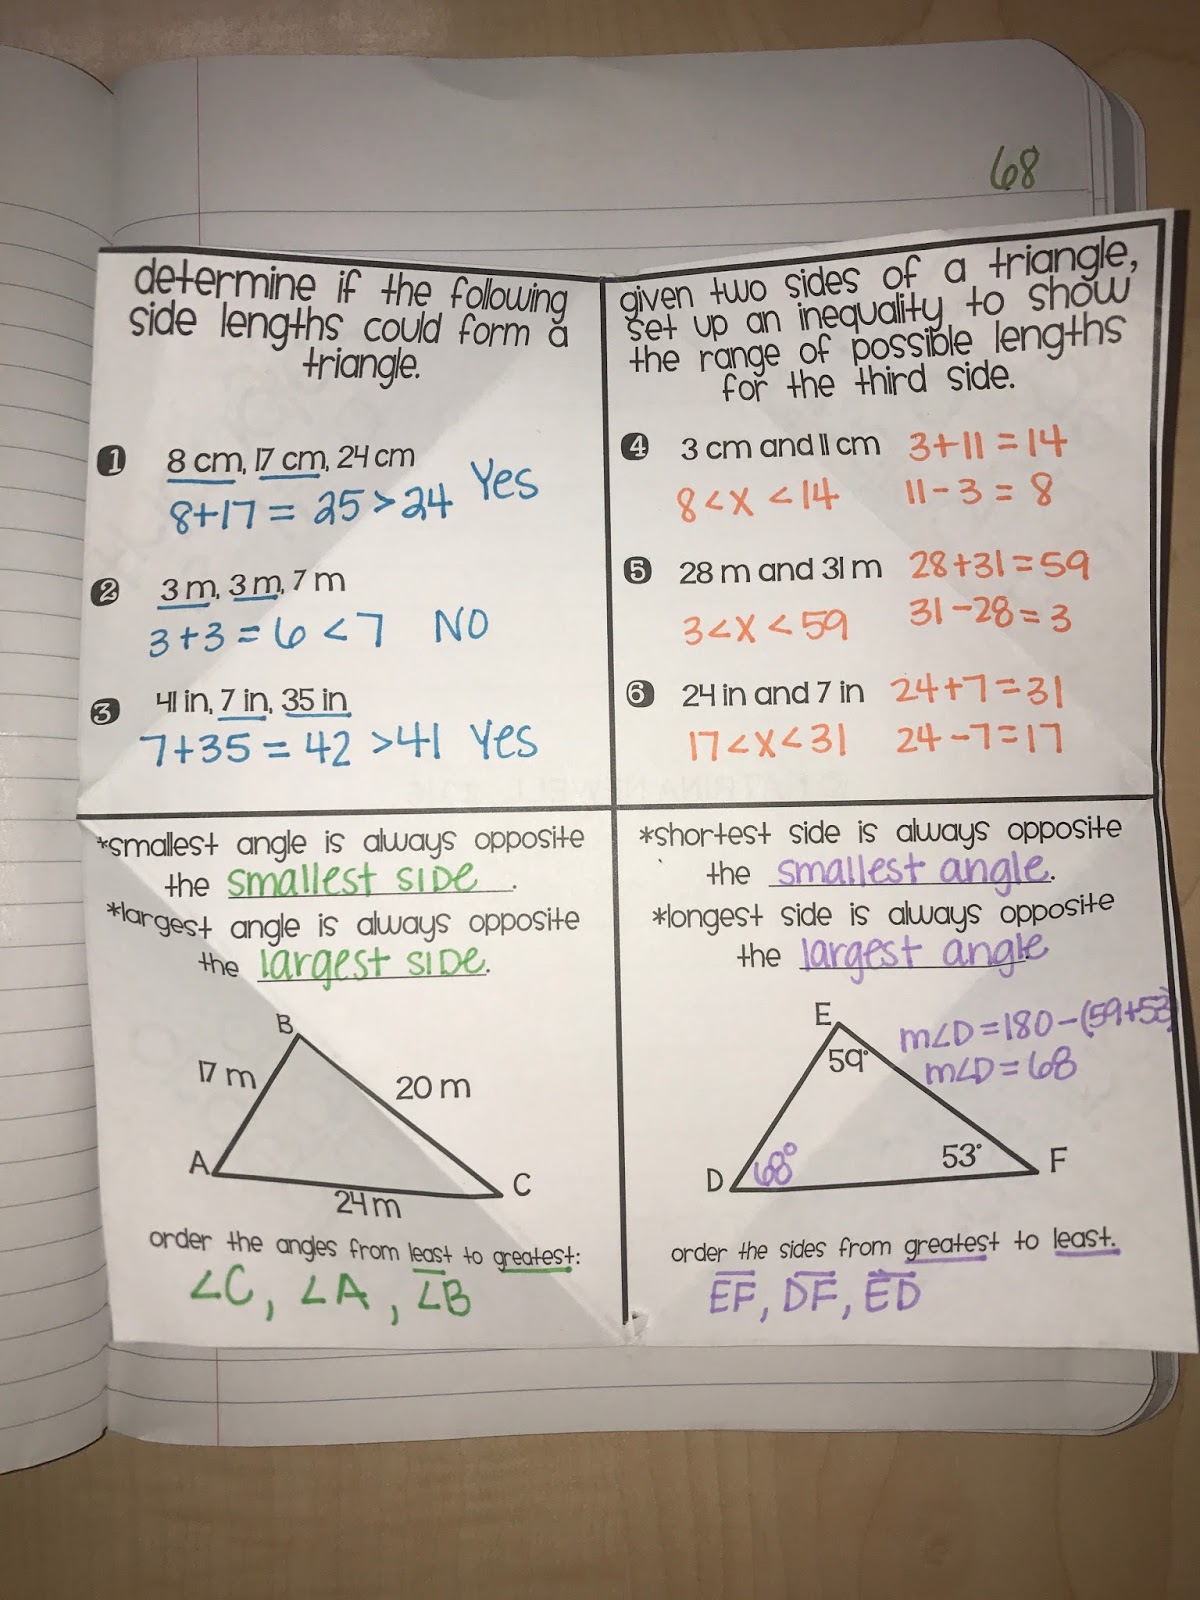 68
determine if the following
side lengths could form a
triangle.
1 8 cm, 17 cm, 24 cm
8+17 = 25 > 24 Yes
2 3 m, 3 m, 7 m
3+3 = 6 < 7 NO
3 41 in, 7 in, 35 in
7+35 = 42 >41 Yes
given two sides of a triangle,
set up an inequality to show
the range of possible lengths
for the third side.
4 3 cm and 11 cm 3+11 = 14
8 < x < 14 11 - 3 = 8
5 28 m and 31 m 28+31 = 59
3 < x < 59 31 - 28 = 3
6 24 in and 7 in 24+7 = 31
17 < x < 31 24 - 7 = 17
*smallest angle is always opposite
the smallest side.
*largest angle is always opposite
the largest side.
B
17 m
20 m
A
C
24 m
order the angles from least to greatest:
∠C, ∠A, ∠B
*shortest side is always opposite
the smallest angle.
*longest side is always opposite
the largest angle
E
m∠D = 180 - (59+53)
59°
m∠D = 68
D 68°
53° F
order the sides from greatest to least.
EF, DF, ED